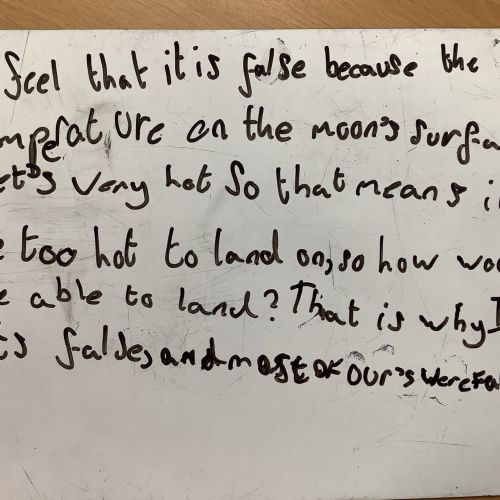 feel that it is false because the
mperature on the moon's surfa
et's very hot so that means i
e too hot to land on, so how wo
e able to land? That is why I
ts false, and most of our's were Fa